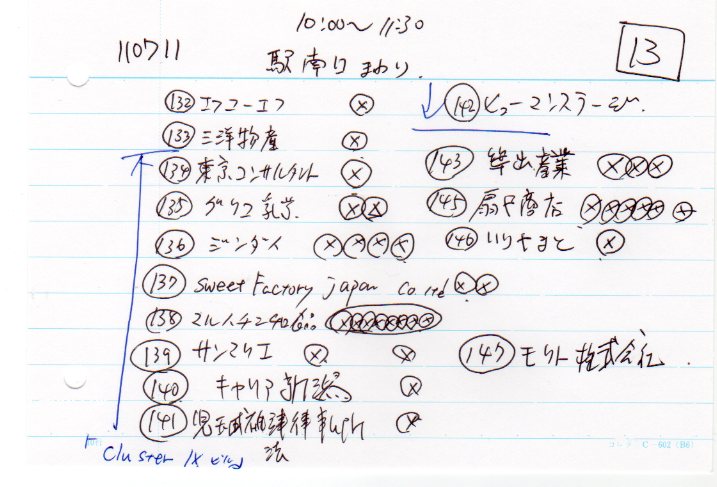 10:00～11:30
110711
駅南口まわり
13
132 エフコーエフ ⊗
133 三洋物産 ⊗
134 東京コンサルタント ⊗
135 グリコ乳業 ⊗⊗
136 ジンダイ ⊗⊗⊗⊗
137 Sweet Factory japan Co ltd ⊗⊗
138 マルハチ ⊗⊗⊗⊗⊗⊗⊗
139 サンマリエ ⊗ ⊗
140 キャリア新潟 ⊗
141 児玉 法律事 ⊗
Cluster IX ビル
142 ヒューマンステージ
143 産業 ⊗⊗⊗
145 扇や商店 ⊗⊗⊗⊗⊗ ⊗
146 いりやまと ⊗
147 モリト株式会社
コレクト C-602 (B6)